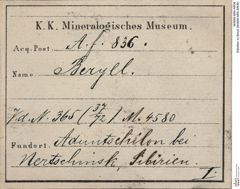 K. K. Mineralogisches Museum.
Acq. Post. A. f. 836.
Name Beryll.
7d. N. 365 (37/72) M. 4580
Fundort. Aduntschilon bei
Nertschinsk, Sibirien.
I.